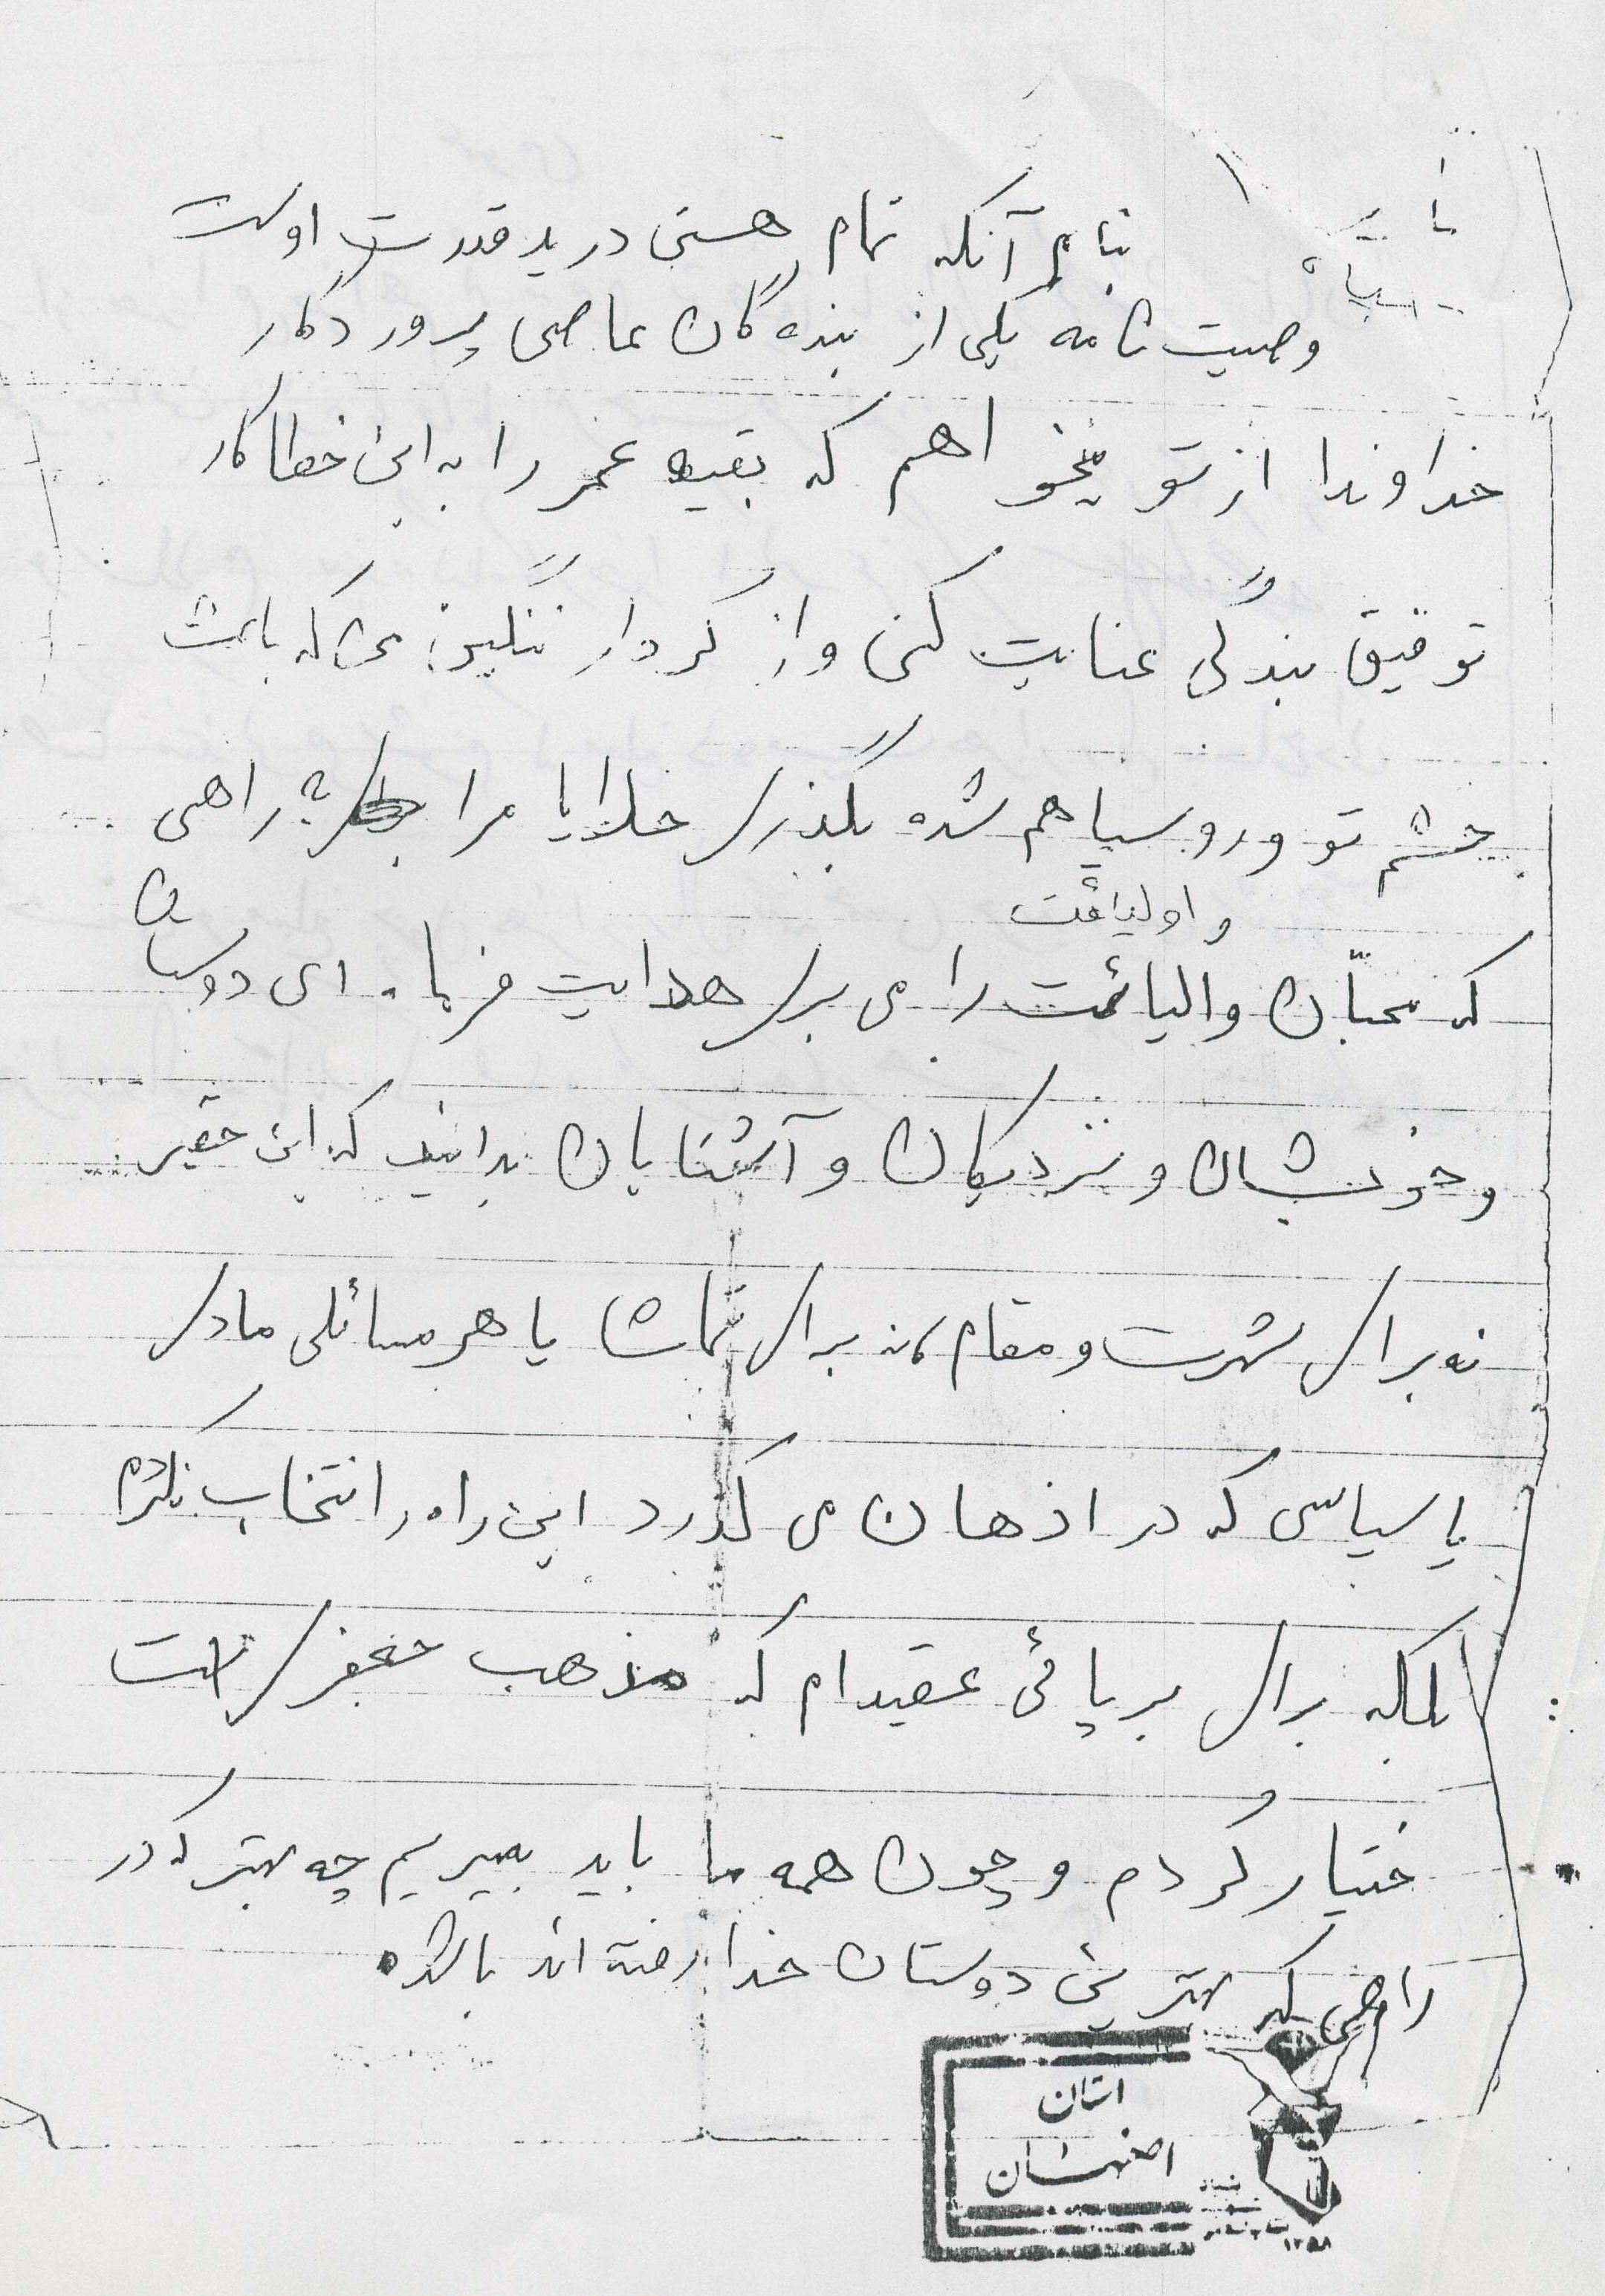 ۱
بنام آنکه تمام هستی در ید قدرت اوست
سپاه
وصیت نامه یکی از بنده گان عاصی پروردگار
خداوندا از تو میخواهم که بقیه عمر را به این خطاکار
توفیق بندگی عنایت کنی و از کردار ننگین من که باعث
خشم تو و رو سیاهم شده بگذری خدایا مرا به راهی
و اولیائت
که محبّان والیائت را می بری هدایت فرما. ای دوستان
و خویشان و نزدیکان و آشنایان بدانید که این حقیر
نه برای شهرت و مقام نه برای تماشا یا هر مسائلی مادی
یا سیاسی که در اذهان می گذرد این راه را انتخاب نکرده
بلکه برای برپائی عقیدام که مذهب جعفری است
ختیار کردم و چون همه ما باید بمیریم چه بهتر که در
راهی که بهترین دوستان خدا رفته اند باشد.
استان
اصفهان
بنیاد
۱۳۵۸